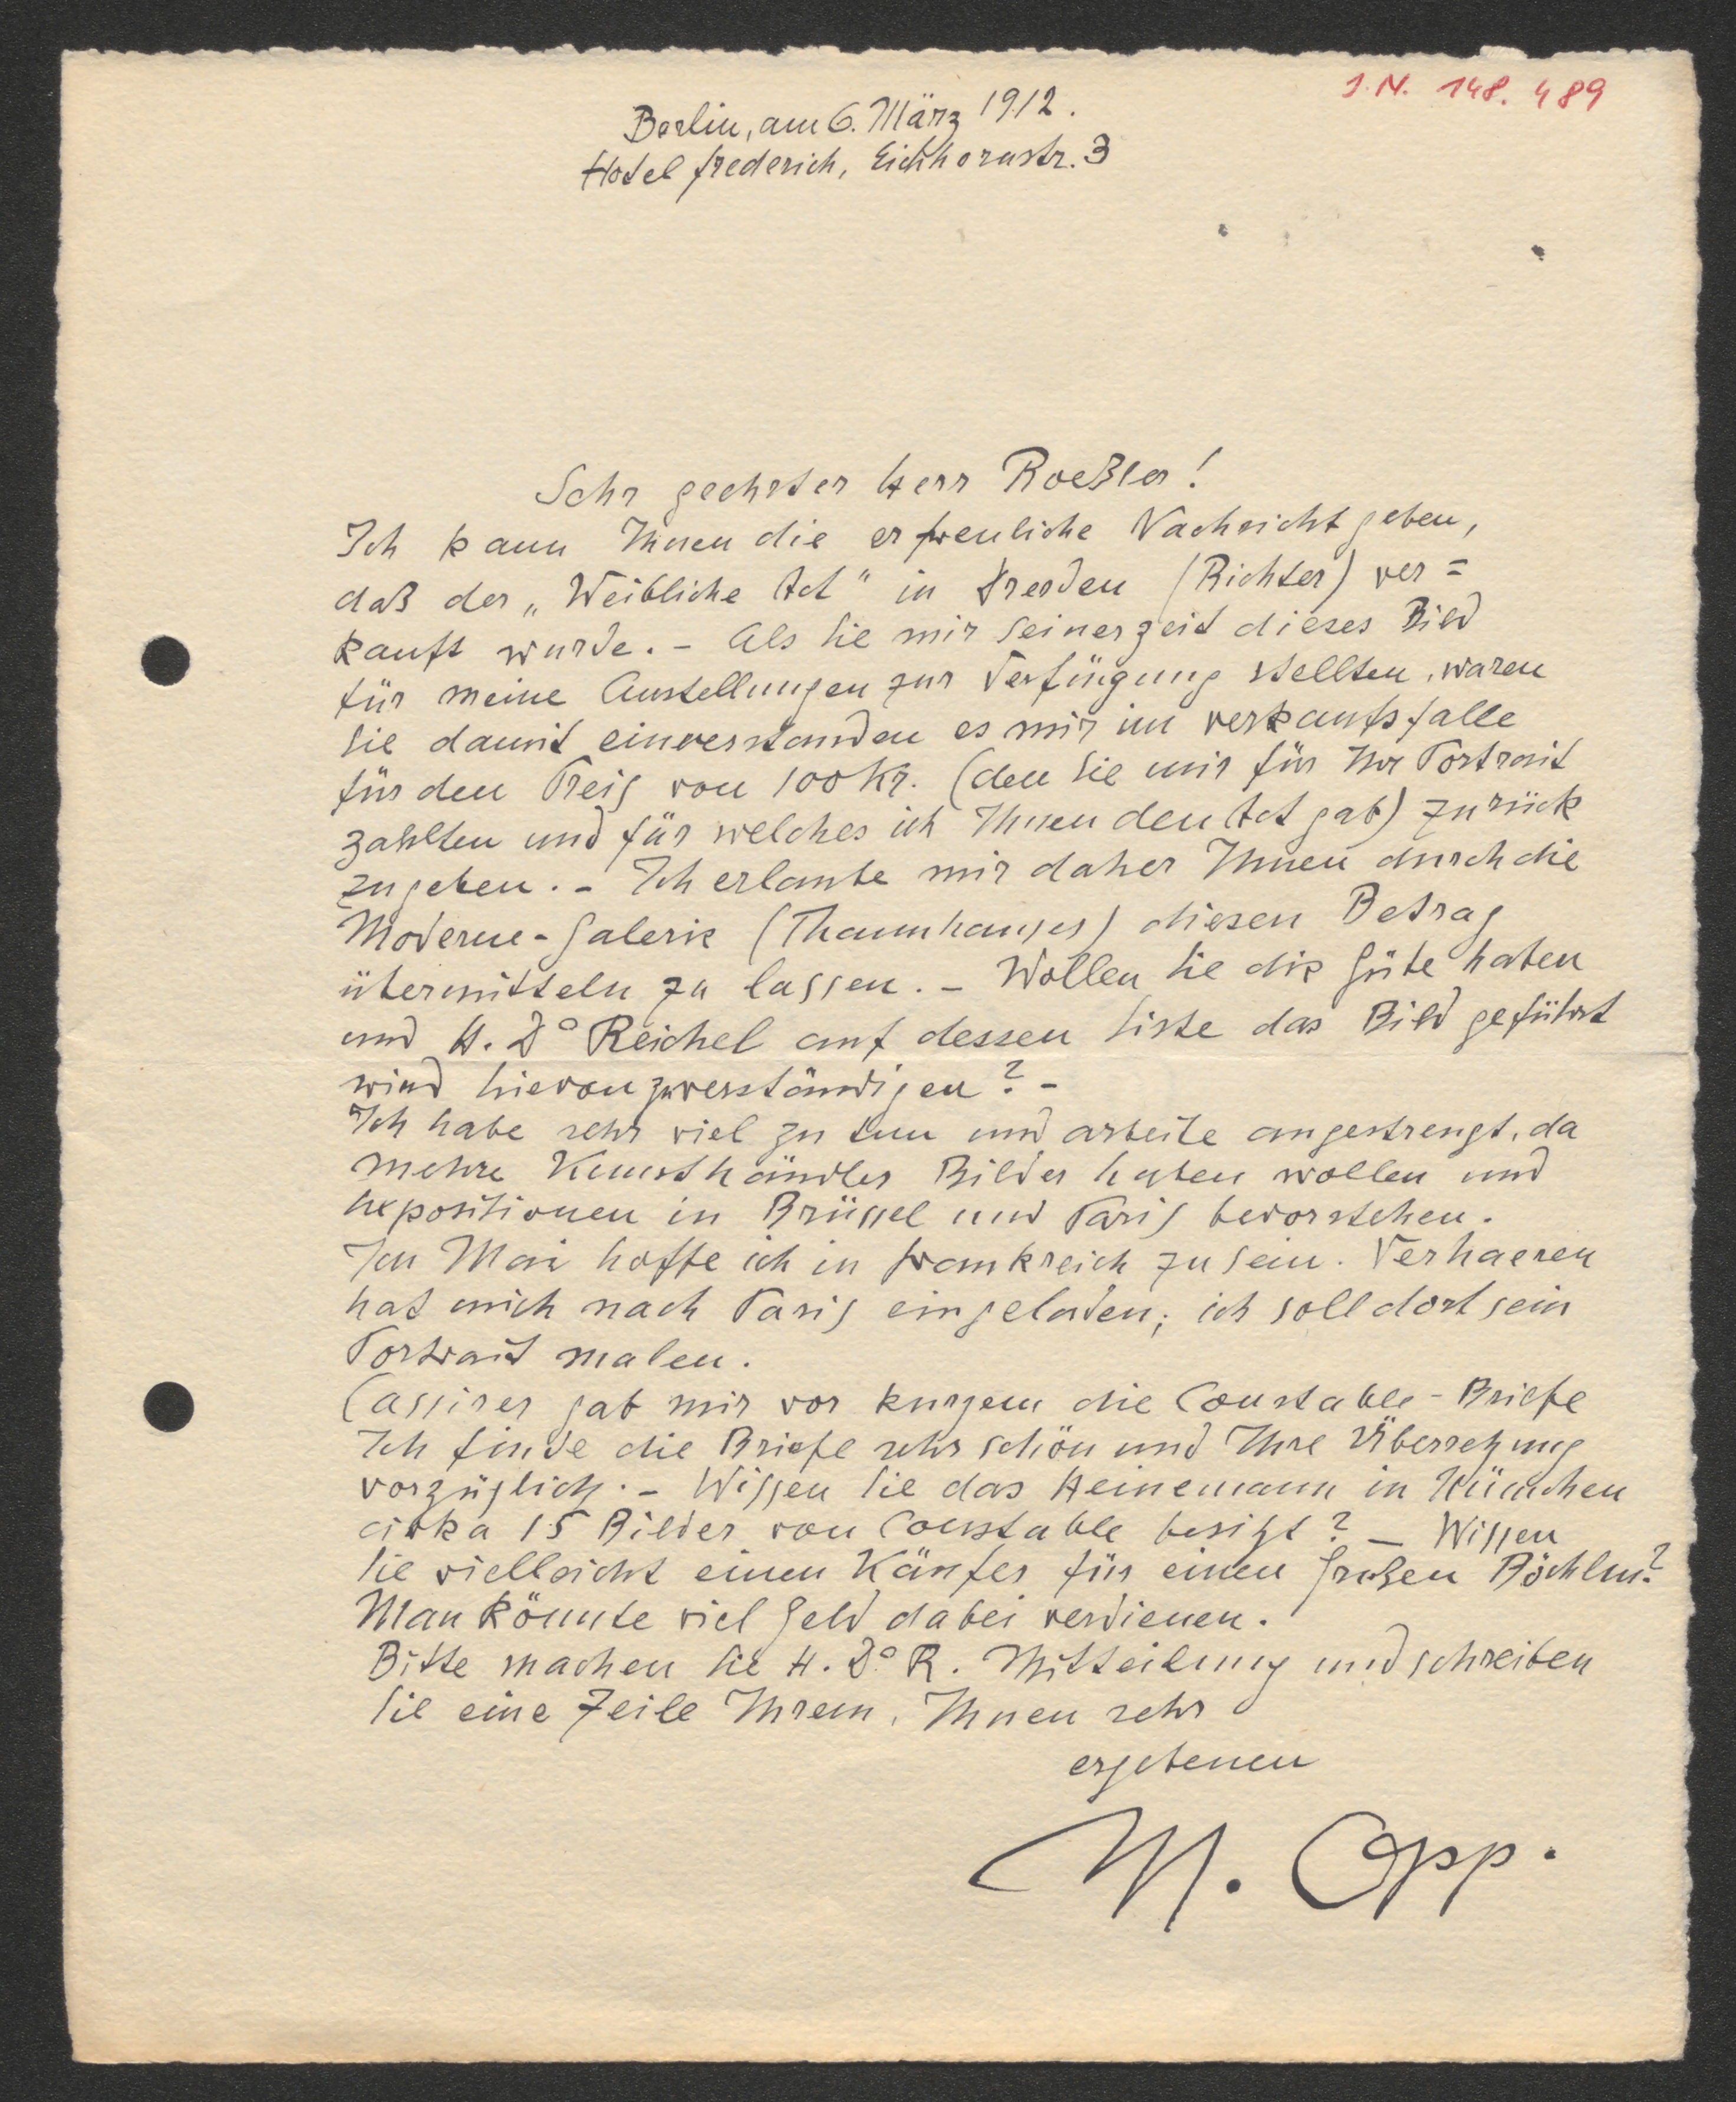 J. N. 148.489
Berlin, am 6. März 1912.
Hotel frederich, Eichhornstr. 3
Sehr geehrter Herr Roeßler!
Ich kann Ihnen die erfreuliche Nachricht geben,
daß der „Weibliche Act" in Dresden (Richter) ver=
kauft wurde. – Als Sie mir seinerzeit dieses Bild
für meine Austellungen zur Verfüngung stellten, waren
Sie damit einverstanden es mir im verkaufsfalle
für den Preis von 100 Kr. (den Sie mir für Ihr Portrait
zahlten und für welches ich Ihnen den Act gab) zurück
zugeben. – Ich erlaube mir daher Ihnen durch die
Moderne-Galerie (Thannhauser) diesen Betrag
übermitteln zu lassen. – Wollen Sie die Güte haben
und H. Do Reichel auf dessen Liste das Bild geführt
wird hievon zuverständigen? –
Ich habe sehr viel zu tun und arbeite angestrengt, da
mehre Kunsthändler Bilder haben wollen und
Expositionen in Brüssel und Paris bevorstehen.
Im Mai hoffe ich in Frankreich zu sein. Verhaeren
hat mich nach Paris eingeladen; ich soll dort sein
Portrait malen.
Cassirer gab mir vor kurzem die Constable-Briefe
Ich finde die Briefe sehr schön und Ihre Übersetzung
vorzüglich. – Wissen Sie das Heinemann in München
cirka 15 Bilder von Constable besitzt? – Wissen
Sie vielleicht einen Käufer für einen großen Böcklin?
Man könnte viel Geld dabei verdienen.
Bitte machen Sie H. Do. R. Mitteilung und schreiben
Sie eine Zeile Ihrem, Ihnen sehr
ergebenen
M. Opp.